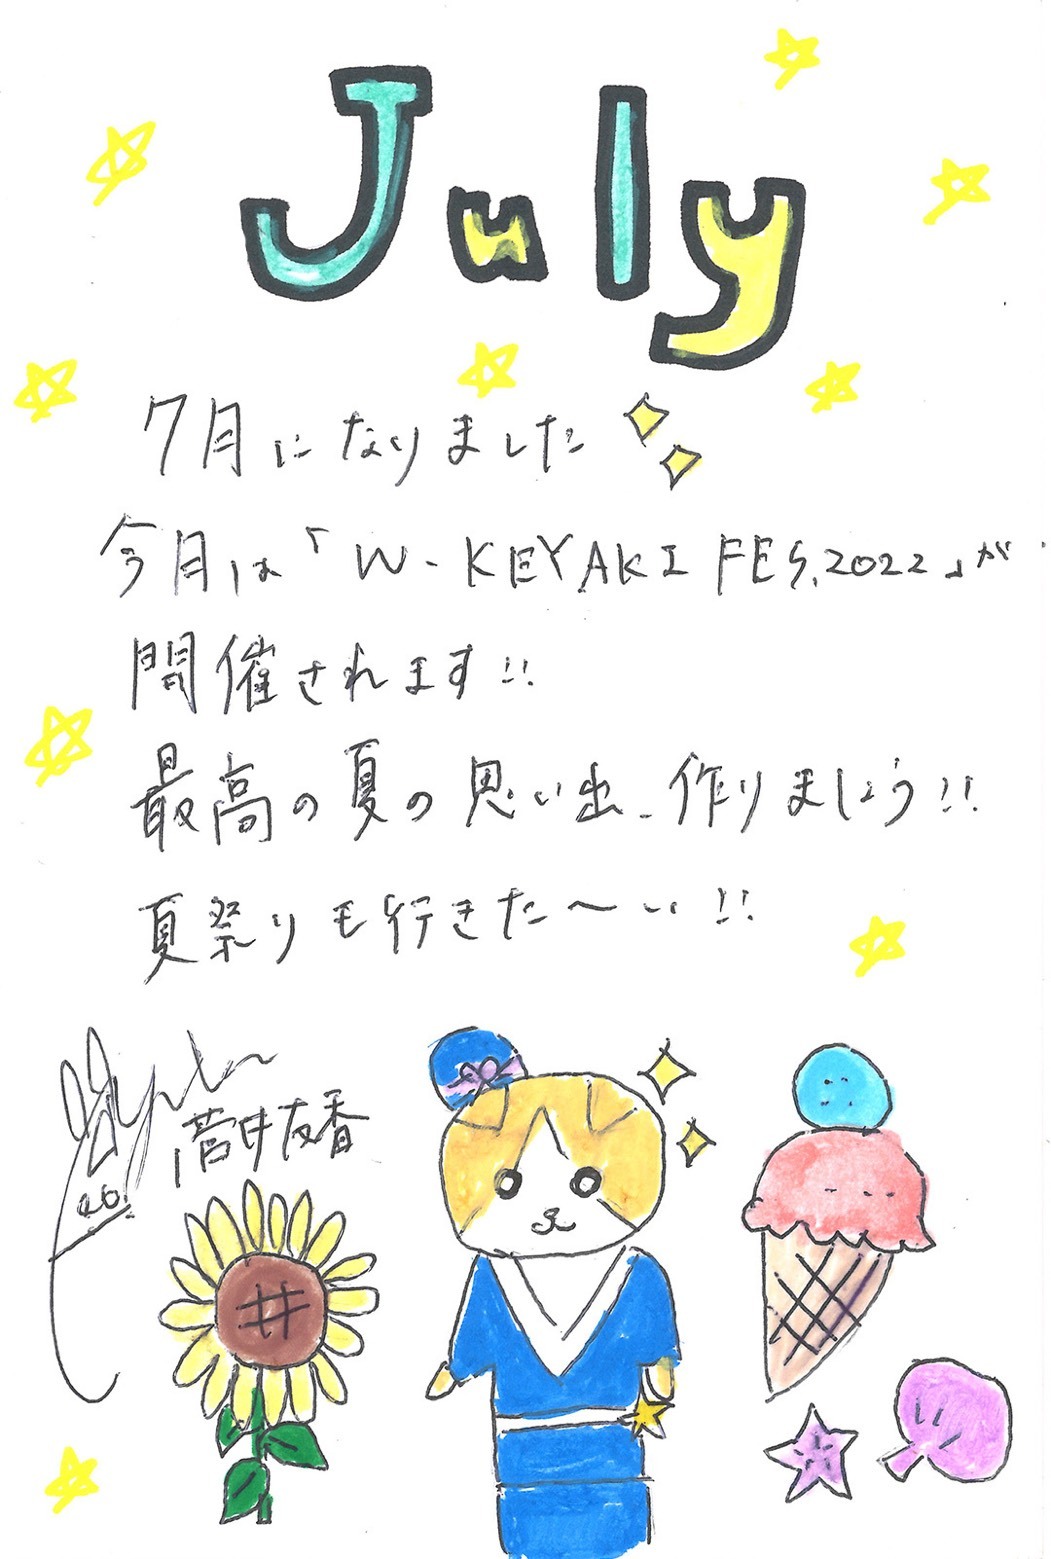 July
7月になりました
今月は「W-KEYAKI FES.2022」が
開催されます!!
最高の夏の思い出、作りましょう!!
夏祭りも行きた〜い!!
髙井友香